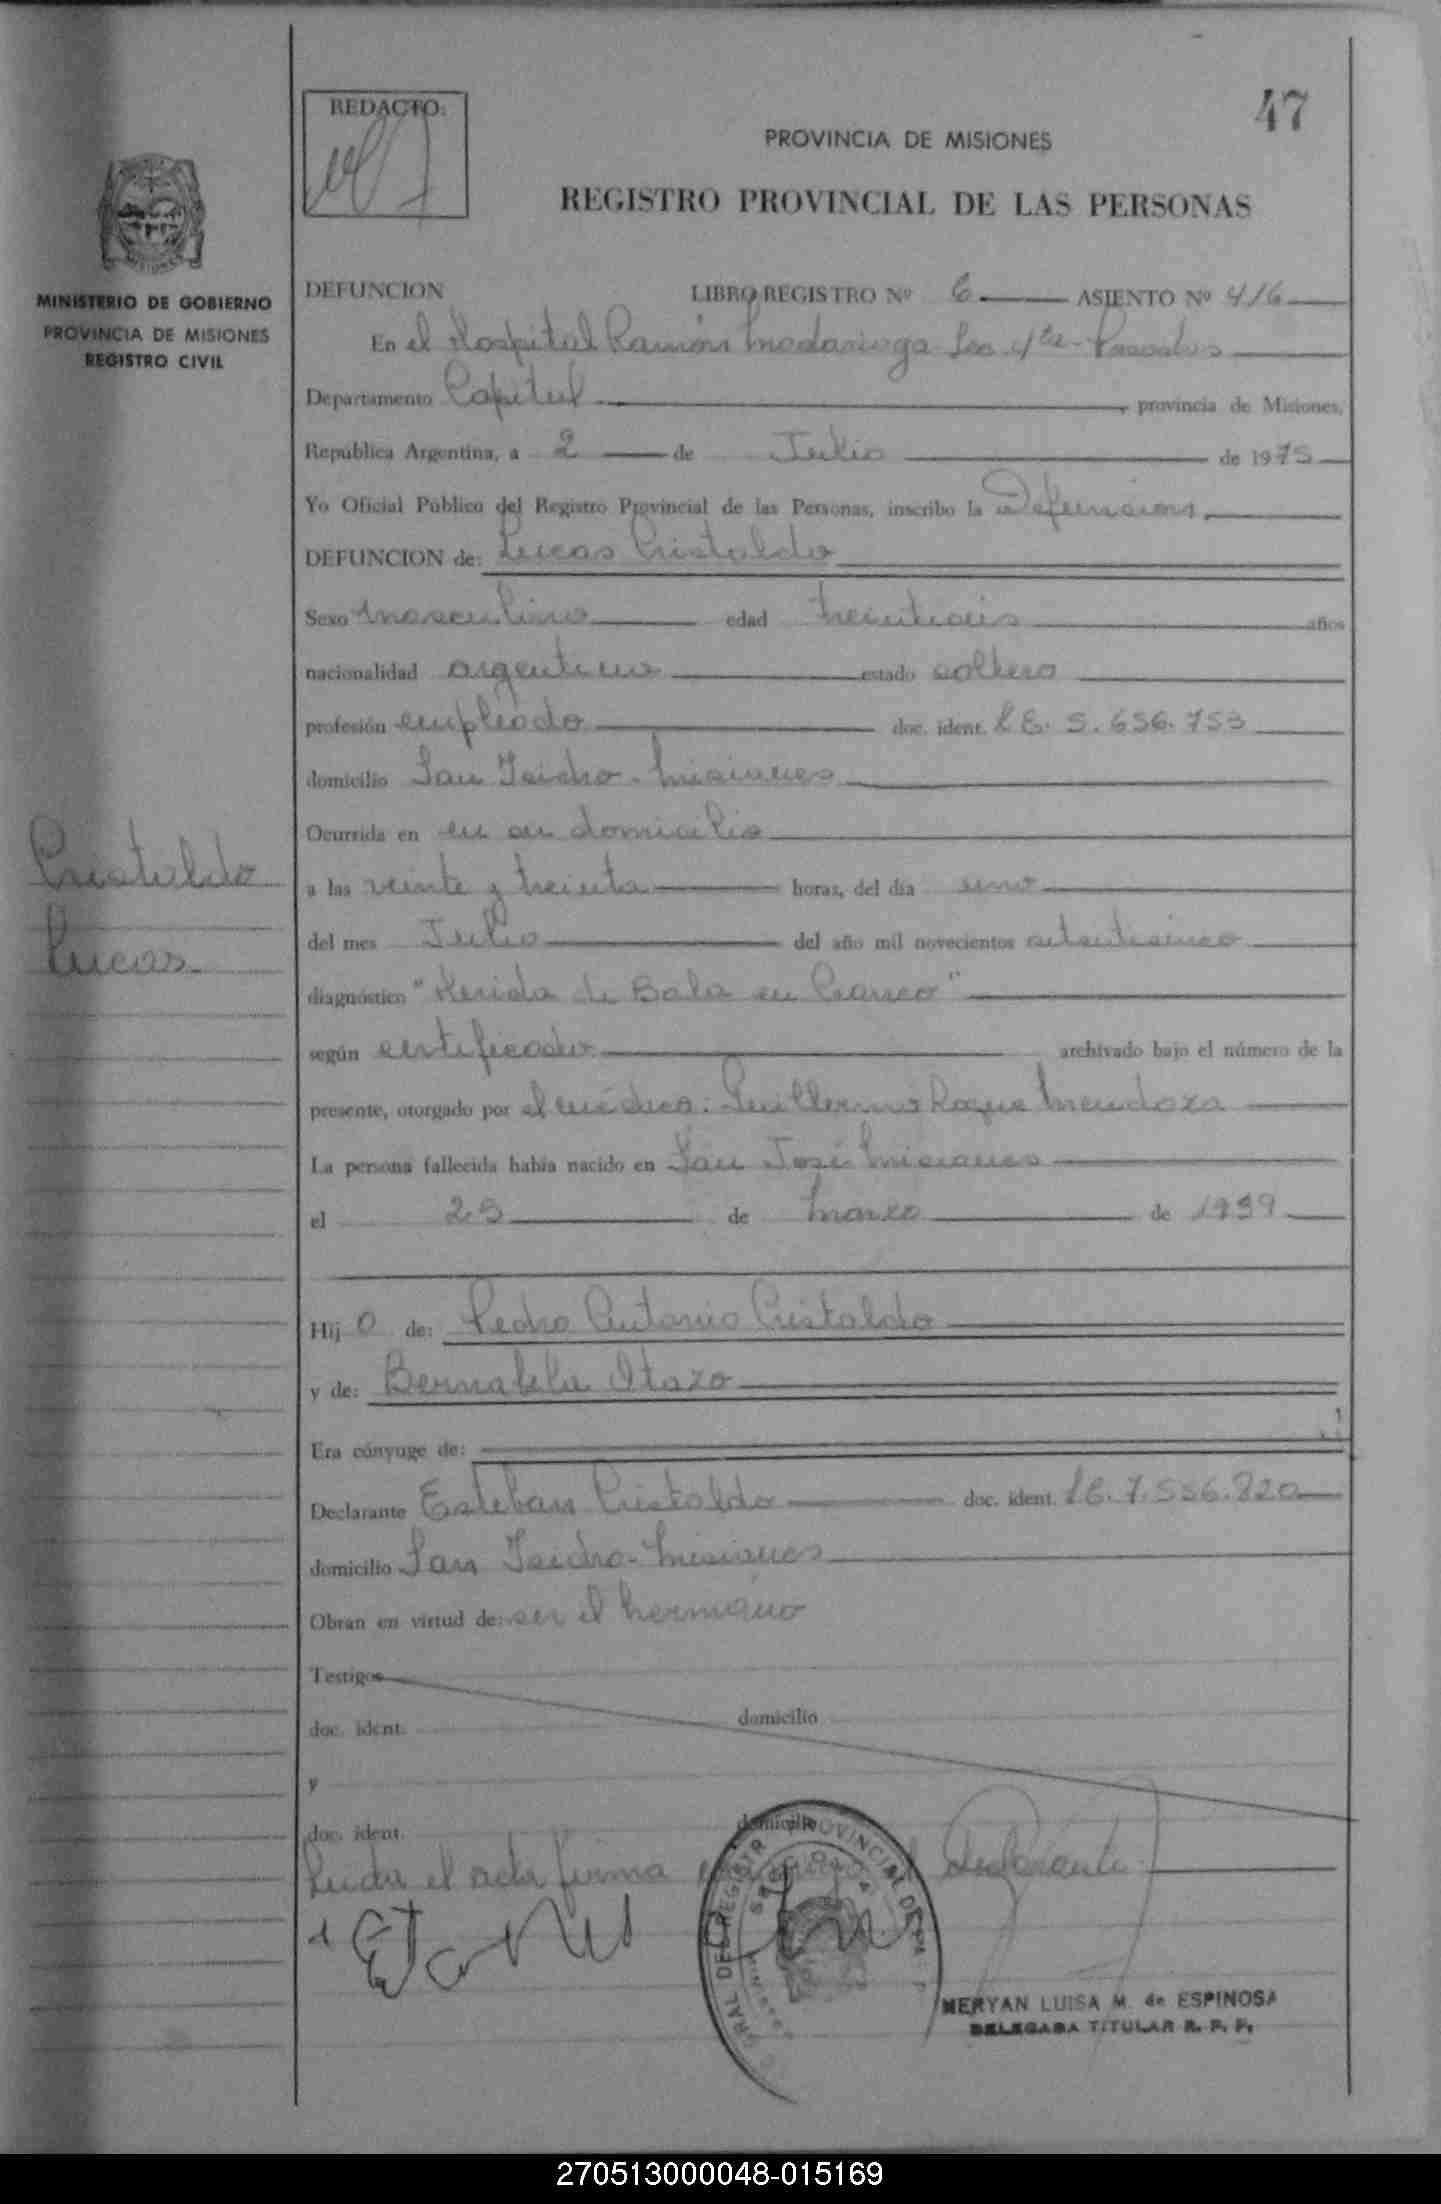 47
REDACTO:
PROVINCIA DE MISIONES
REGISTRO PROVINCIAL DE LAS PERSONAS
MINISTERIO DE GOBIERNO
PROVINCIA DE MISIONES
REGISTRO CIVIL
DEFUNCION LIBRO REGISTRO Nº 6 ASIENTO Nº 416
En el Hospital Ramón Madariaga Sec. 4ta - Posadas
Departamento Capital, provincia de Misiones,
República Argentina, a 2 de Julio de 1975
Yo Oficial Público del Registro Provincial de las Personas, inscribo la Defuncion,
DEFUNCION de: Lucas Cristaldo
Sexo masculino edad treintiseis años
nacionalidad argentino estado soltero
profesión empleado doc. ident. LE. 5.656.753
domicilio San Isidro - Misiones
Ocurrida en en su domicilio
Cristaldo
Lucas
a las veinte y treinta horas, del día uno
del mes Julio del año mil novecientos setenticinco
diagnóstico "Herida de Bala en Craneo"
según certificado archivado bajo el número de la
presente, otorgado por el médico: Guillermo Roque Mendoza
La persona fallecida había nacido en San José Misiones
el 25 de marzo de 1939
Hij o de: Pedro Antonio Cristaldo
y de: Bernabela Itazo
Era cónyuge de:
Declarante Esteban Cristaldo doc. ident. LE. 7.556.820
domicilio San Isidro - Misiones
Obran en virtud de: ser el hermano
Testigos
doc. ident. domicilio
y
doc. ident. domicilio
Leida el acta firma el Declarante.
MERYAN LUISA M. de ESPINOSA
DELEGADA TITULAR R. P. P.
270513000048-015169